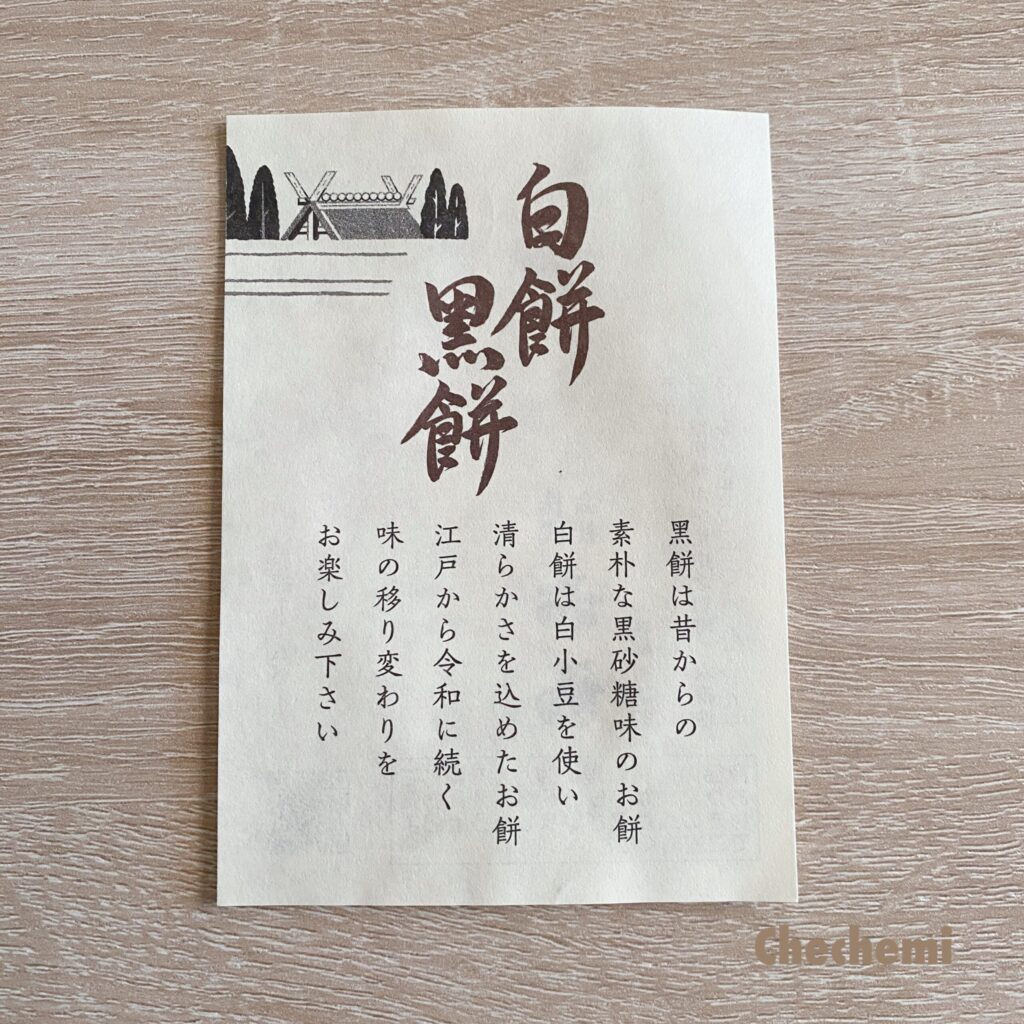 白餅
黒餅
黒餅は昔からの
素朴な黒砂糖味のお餅
白餅は白小豆を使い
清らかさを込めたお餅
江戸から令和に続く
味の移り変わりを
お楽しみ下さい
Chechemi